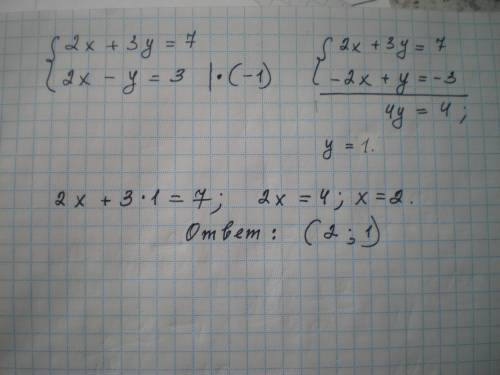 2x + 3y = 7
2x - y = 3 | · (-1)
2x + 3y = 7
-2x + y = -3
4y = 4 ;
y = 1.
2x + 3 · 1 = 7 ; 2x = 4 ; x = 2.
Ответ : (2 ; 1)